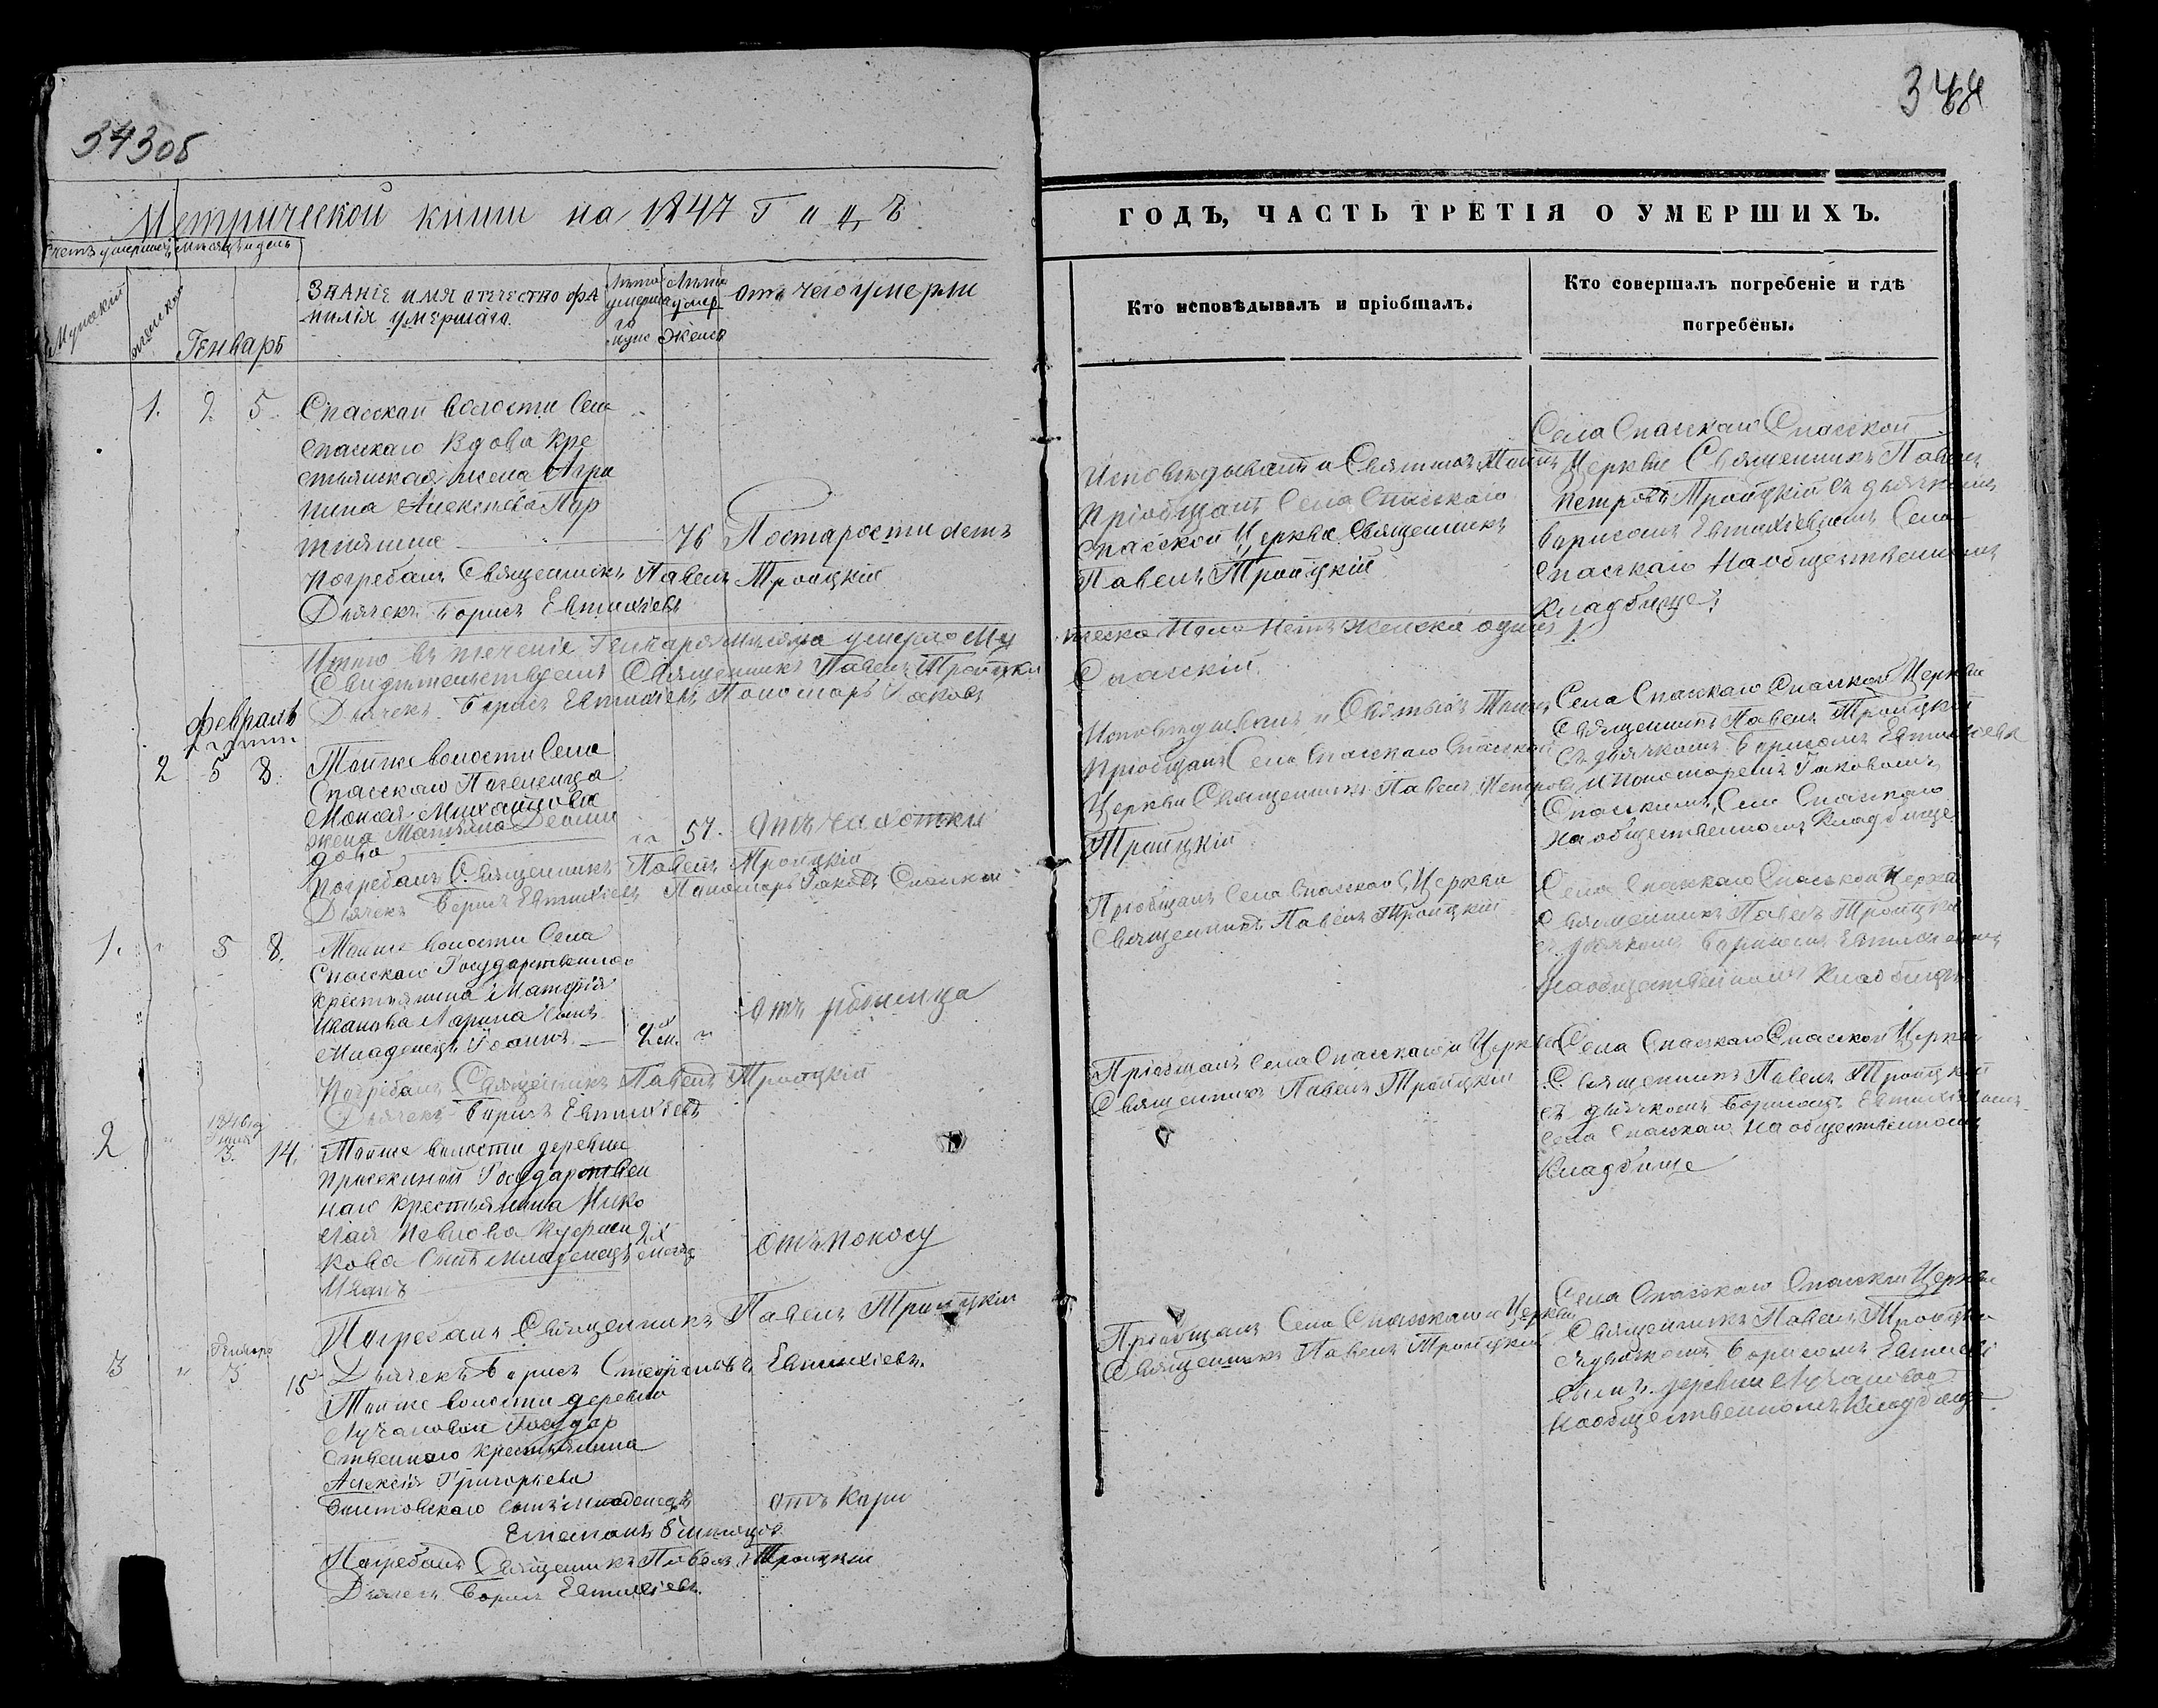 343об
Метрической книги на 1847 Г о д ъ
Счетъ умершихъ Мѣсяцъ и день
Мужский
женской
Генварь
Званіе имя отечество фа
милія умершаго
Лѣта
умерша
го
муж
Лѣта
умер
женс
отъ чего умерли
1. 2 5 Спасской волости Села
Спаскаго Вдова Кре
стьянская жена Агри
пина Алексѣева
76 По старости летъ
Погребалъ Священникъ Павелъ Троицкій
Дьячекъ Борисъ Евтихіевъ
Итого въ теченіе Генваря мѣсяца умерло Му
Свидѣтельствуемъ Священникъ Павелъ Троицкій
Дьячекъ Борисъ Евтихіевъ Пономарь Іаковъ
Февраль
2 5 8. Тойже волости Села
Спаскаго Поселенца
Михайлова
жена
дова
57. Отъ чахотки
Погребалъ Священникъ Павелъ Троицкій
Дьячекъ Борисъ Евтихіевъ Пономарь Іаковъ Спаскій
1. " 5 8. Тойже волости Села
Спаскаго Государственнаго
крестьянина Матфія
Иванова Ларина сынъ
Младенецъ Іоаннъ
2 м. "
Отъ родимца
Погребалъ Священникъ Павелъ Троицкій
Дьячекъ Борисъ Евтихіевъ
1846 год
2 " 3. 14. Тойже волости деревни
Государствен
наго крестьянина Нико
лая
кова Сынъ младенецъ
Иванъ
отъ поносу
Погребалъ Священникъ Павелъ Троицкій
Генваря
3 " 3 15 Дьячекъ Борисъ Евтихіевъ.
Тойже волости деревни
Лучановой Государ
ственнаго крестьянина
Алексія Григорьева
сынъ младенецъ
отъ кори
Погребалъ Священникъ Павелъ Троицкій
Дьячекъ Борисъ Евтихіевъ.
344
ГОДЪ, ЧАСТЬ ТРЕТІЯ О УМЕРШИХЪ.
Кто исповѣдывалъ и пріобщалъ.
Кто совершалъ погребеніе и гдѣ
погребены.
Исповѣдывалъ и Святыхъ Таинъ
Пріобщалъ Села Спаскаго
Спасской Церкви Священникъ
Павелъ Троицкій
Села Спаскаго Спасской
Церкви Священникъ Павелъ
Петровъ Троицкій съ дьячкомъ
Борисомъ Евтихіевымъ Села
Спаскаго На общественномъ
Кладбище
жеска пола Нетъ женска одна 1
Спаскій
Исповѣдывалъ и Святыхъ Таинъ
Пріобщалъ Села Спаскаго Спаской
Церкви Священникъ Павелъ Петровъ
Троицкій
Села Спаскаго Спаской Церкви
Священникъ Павелъ Троицкій
съ дьячкомъ Борисомъ Евтихіевымъ
и Пономаремъ Іаковомъ
Спаскимъ, Села Спаскаго
на общественномъ Кладбище
Пріобщалъ Села Спаскаго Церкви
Священникъ Павелъ Троицкій
Села Спаскаго Спаской Церкви
Священникъ Павелъ Троицкій
съ дьячкомъ Борисомъ Евтихіевымъ
на общественномъ Кладбище
Пріобщалъ Села Спаскаго Церкви
Священникъ Павелъ Троицкій
Села Спаскаго Спаской Церкви
Священникъ Павелъ Троицкій
съ дьячкомъ Борисомъ Евтихіевымъ
Села Спаскаго На общественномъ
Кладбище
Пріобщалъ Села Спаскаго Церкви
Священникъ Павелъ Троицкій
Села Спаскаго Спаской Церкви
Священникъ Павелъ Троицкій
съ дьячкомъ Борисомъ Евтихі
евымъ деревни Лучановой
На общественномъ Кладбище